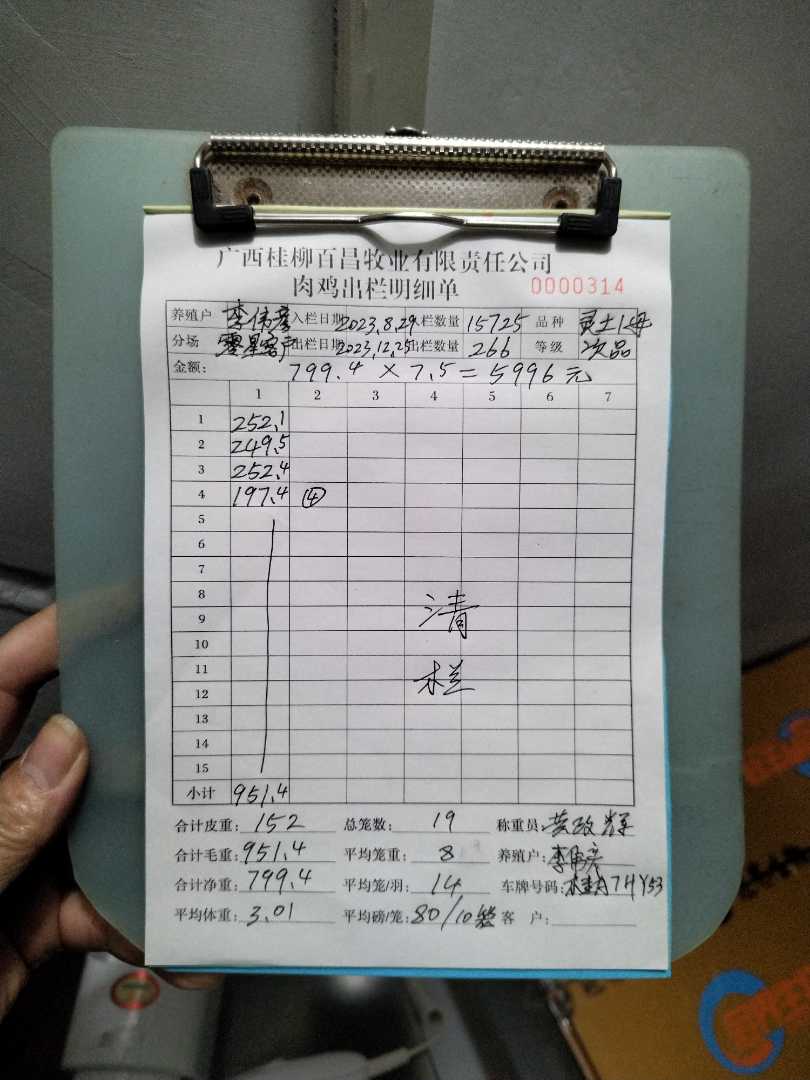 广西桂柳百昌牧业有限责任公司
肉鸡出栏明细单 0000314
养殖户 李伟彦 入栏日期 2023.8.29 栏数量 15725 品种 灵土1母
分场 零星客户 出栏日期 2023.12.25 出栏数量 266 等级 次品
金额: 799.4 × 7.5 = 5996元
1 2 3 4 5 6 7
1 252.1
2 249.5
3 252.4
4 197.4 ④
5
6
7
8
9 清
10
11
12 栏
13
14
15
小计 951.4
合计皮重: 152 总笼数: 19 称重员: 辉
合计毛重: 951.4 平均笼重: 8 养殖户: 李伟彦
合计净重: 799.4 平均笼/羽: 14 车牌号码: 74Y53
平均体重: 3.01 平均磅/笼: 80/10笼 客 户: